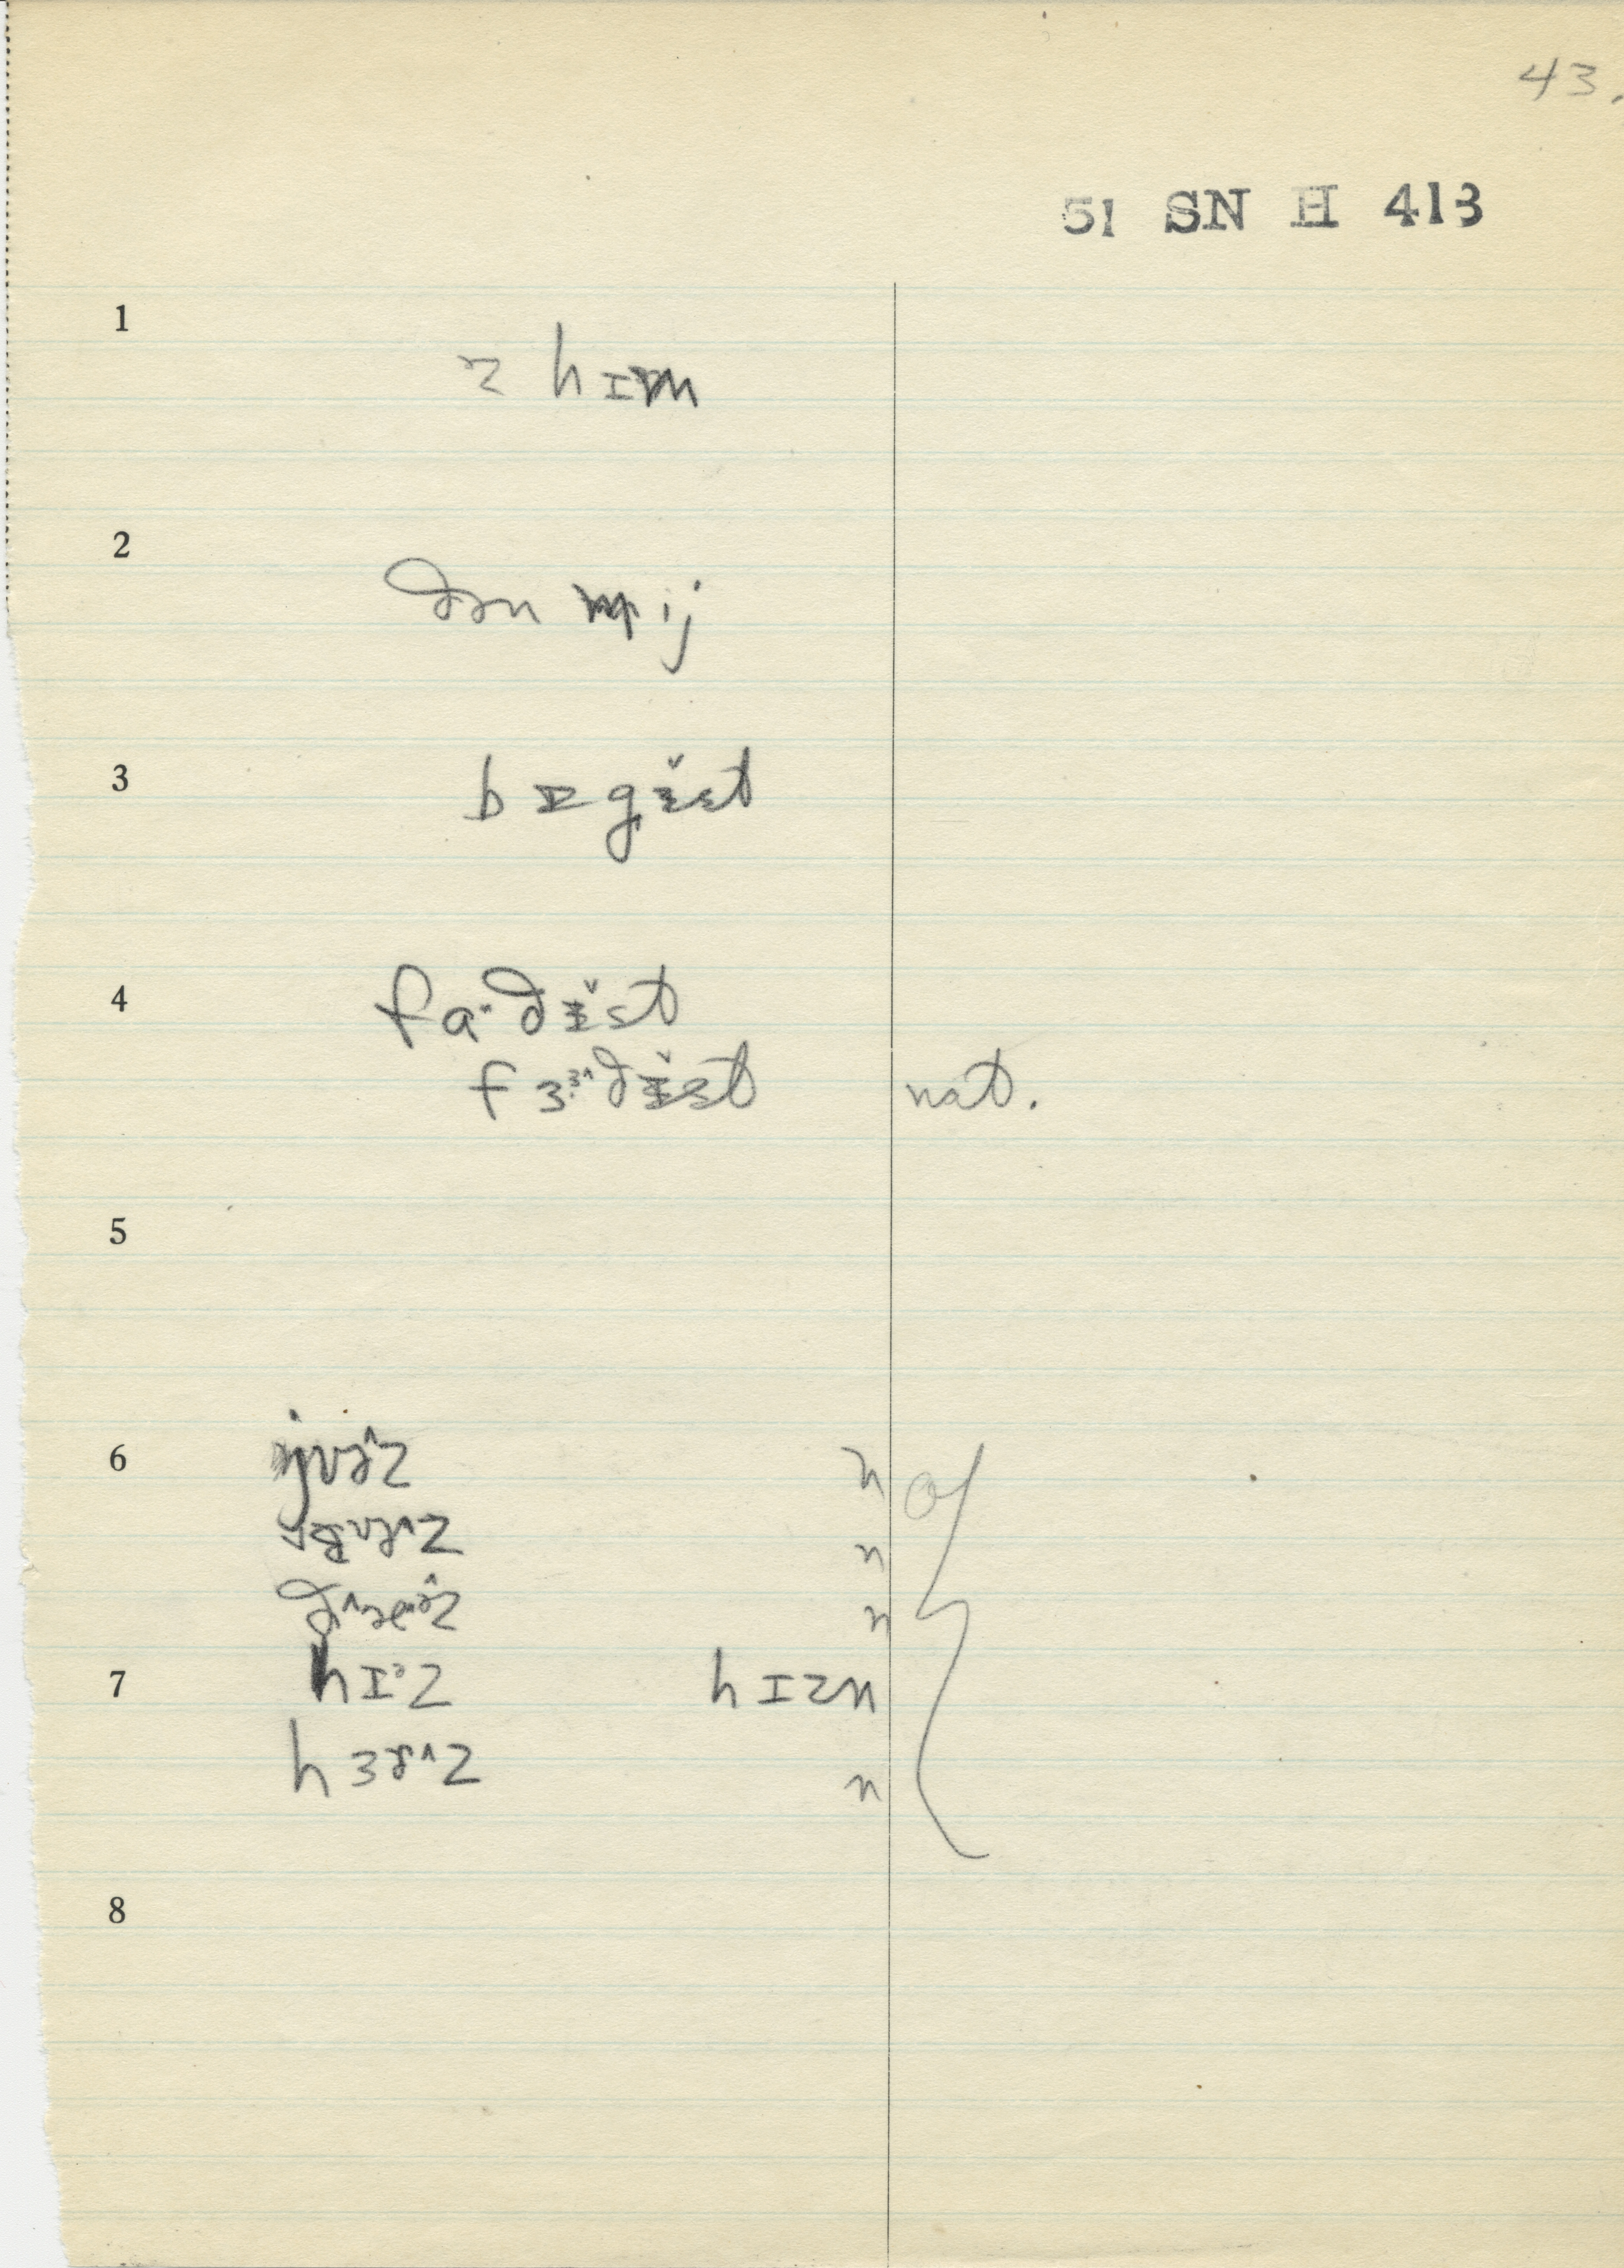 43.
51 SN H 413
1
z hɪm
2
ðən mij
3
bɪgɪ̆st
4
fɑ·ðɪ̆st
fɜ·ɝðɪ̆st nat.
5
6
jʊɚz n of
n
n
7
hɪᵊz hɪzn
hɜɚz n
8